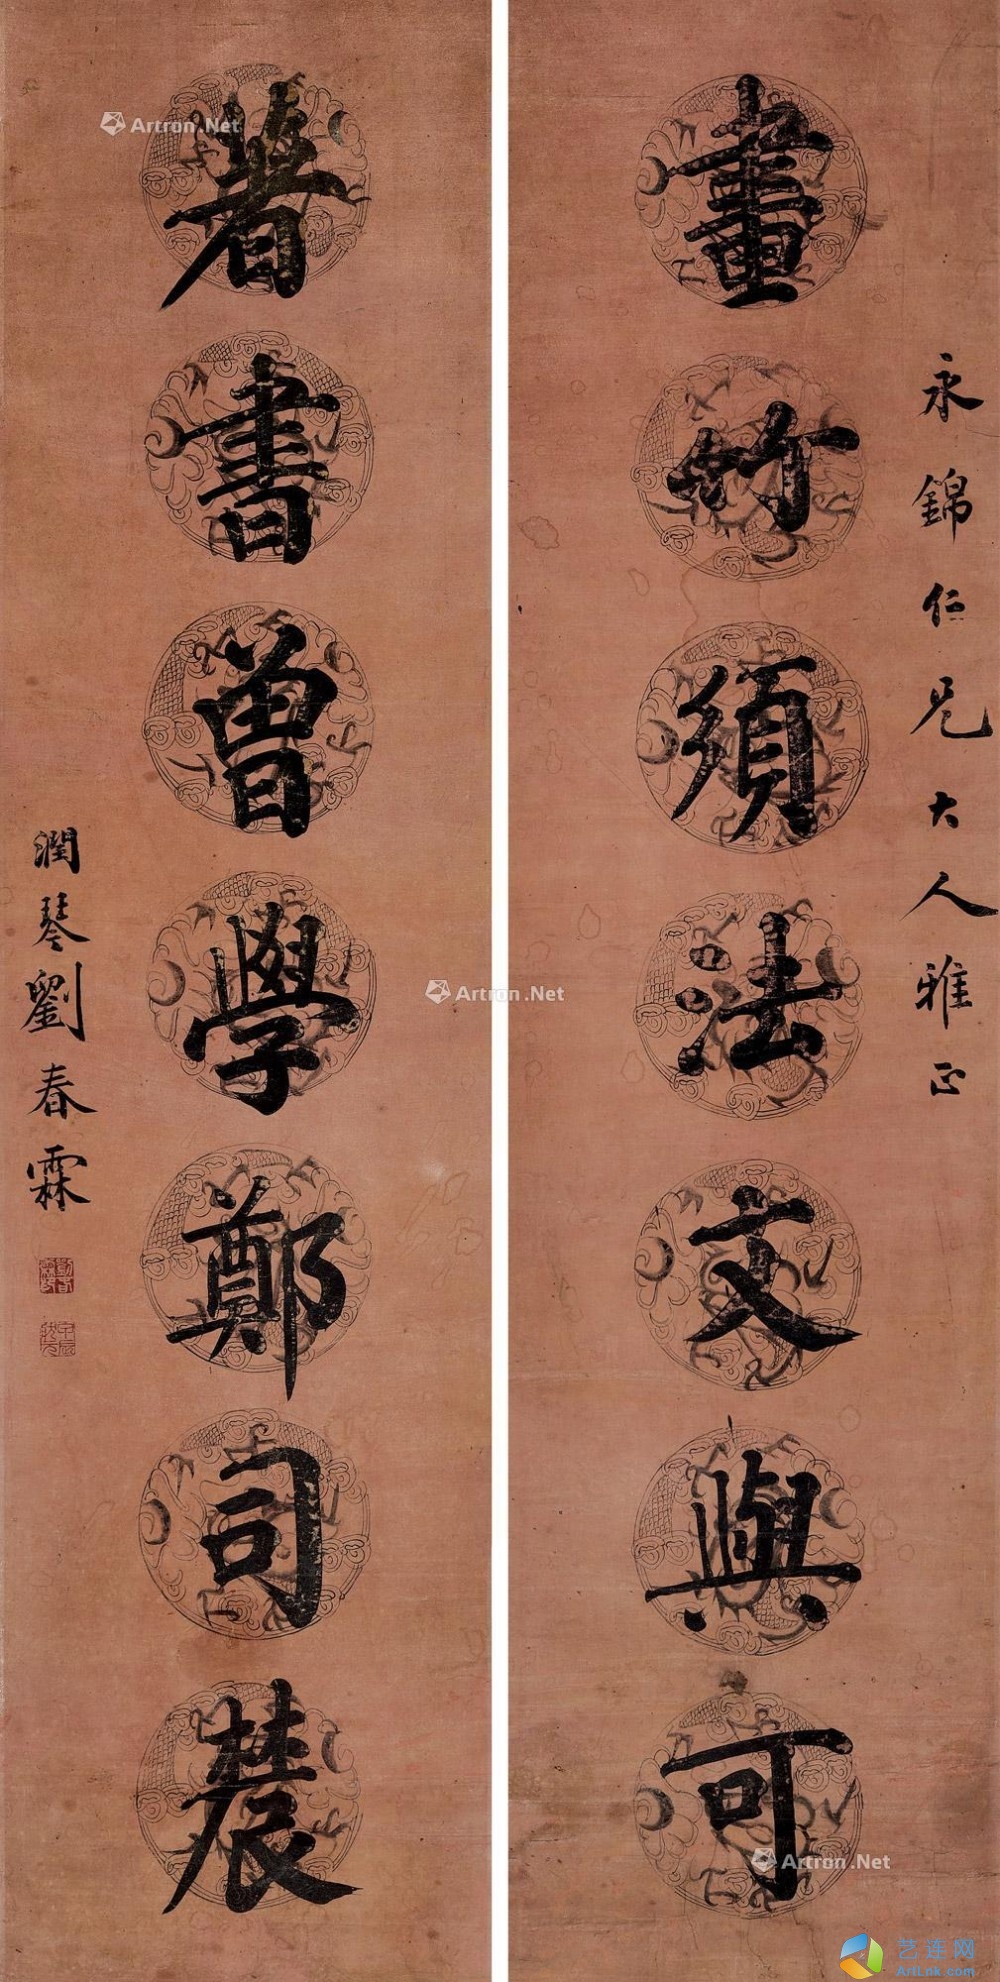 永錦仁兄大人雅正
畫竹須法文與可
著書曾學鄭司農
潤琴劉春霖
Artron.Net
Artron.Net
Artron.Net
艺连网
ArtLnk.com